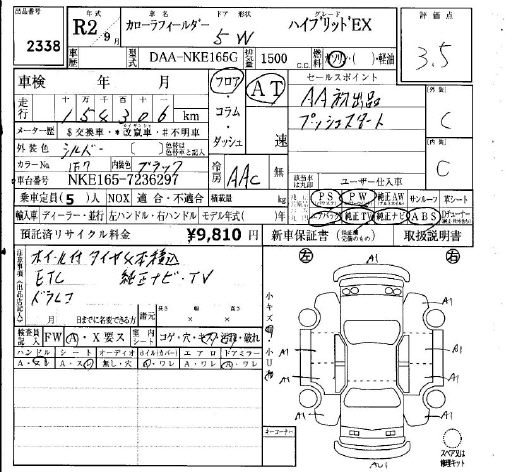 出品番号 2338
年式 R2 9月
車名 カローラフィールダー
ドア 形状 5 W
グレード ハイブリッドEX
車歴
型式 DAA-NKE165G
排気量 1500 c.c.
燃料 ガソリン・( )・軽油
評価点 3.5
車検 年 月
フロア・コラム・ダッシュ
AT 速
セールスポイント
AA初出品
プッシュスタート
外装 C
内装 C
走行 十 万 千 百 十 一
km
メーター歴 $交換車・*改竄車・#不明車
外装色 シルバー
カラーNo. 1F7
内装色 ブラック
冷房 AAC 無
車台番号 NKE165-7236297
ユーザー仕入車
乗車定員 (5) 人 NOX 適合・不適合 積載量 kg
輸入車 ディーラー・並行 左ハンドル・右ハンドル モデル年式( )年
PS PW 純正AW サンルーフ 革シート
エアバッグ 純正TV 純正ナビ ABS
預託済リサイクル料金 ¥9,810 円
新車保証書 取扱説明書
注意事項(出品店記入)
ホイル付タイヤ4本積込
ETC 純正ナビ・TV
ドラレコ
月 日までに名変できる方
諸元 長さ 幅 高さ
検査員記入 FW A・X要ス
室内シート コゲ・穴・キズ・汚れ・破れ
ハンドル シート オーディオ ホイル(カバー) エアロ ドアミラー
無し・穴
コーナー
左 右
小キズ 小U
A1
A1
A1
A1
A1
A1
A1
A1
AU1
スペア又は修理キット